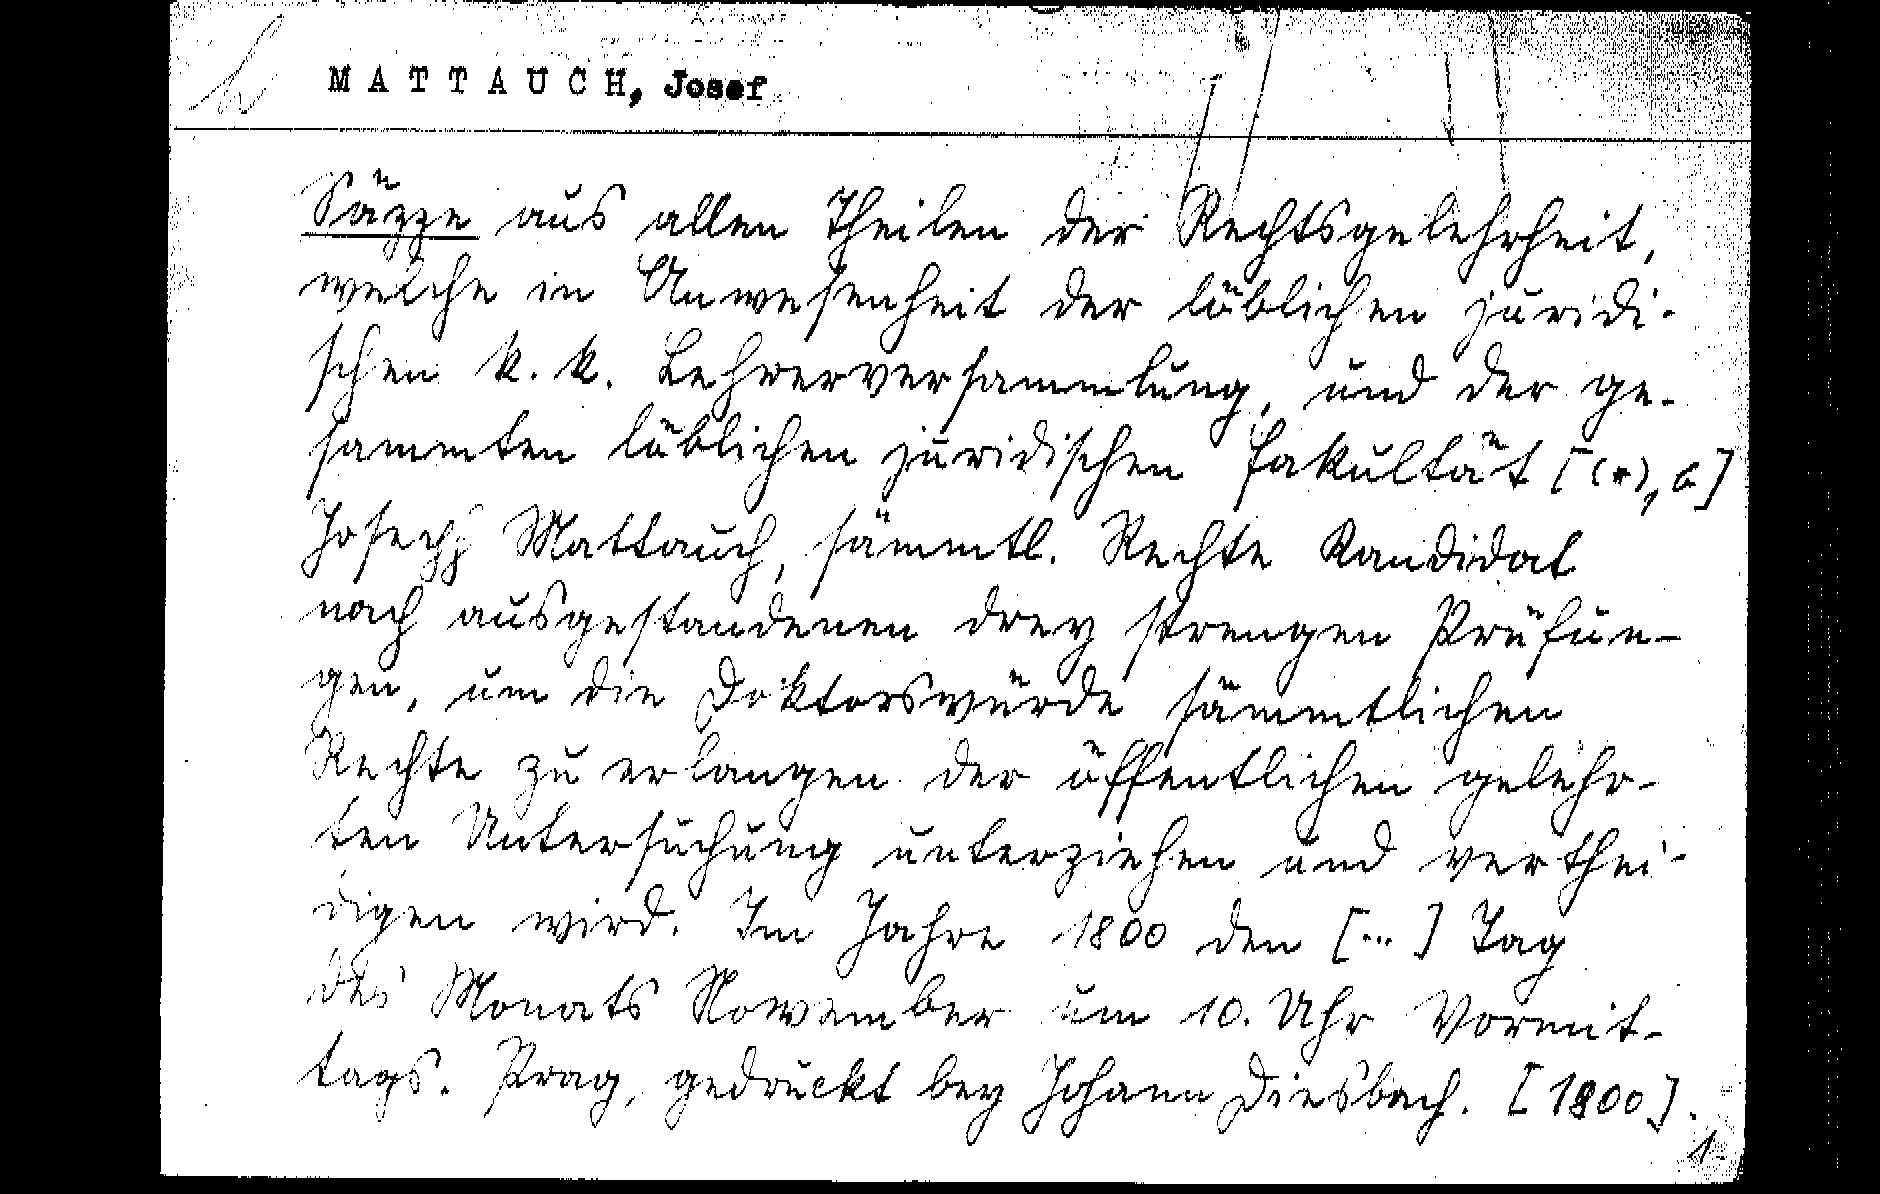 h
MATTAUCH, Josef
Säzze aus allen Theilen der Rechtsgelehrheit,
welche in Anwesenheit der löblichen juridi-
schen k. k. Lehrerversammlung, und der ge-
sammten löblichen juridischen Fakultät [(*), a]
Joseph Mattauch, sämmtl. Rechte Kandidat
nach ausgestandenen drey strengen Prüfun-
gen, um die Doktorswürde sämmtlichen
Rechte zu erlangen der öffentlichen gelehr-
ten Untersuchung unterziehen und verthei-
digen wird. Im Jahre 1800 den [...] Tag
des Monats November um 10. Uhr Vormit-
tags. Prag, gedruckt bey Johann Diesbach. [1800].
1